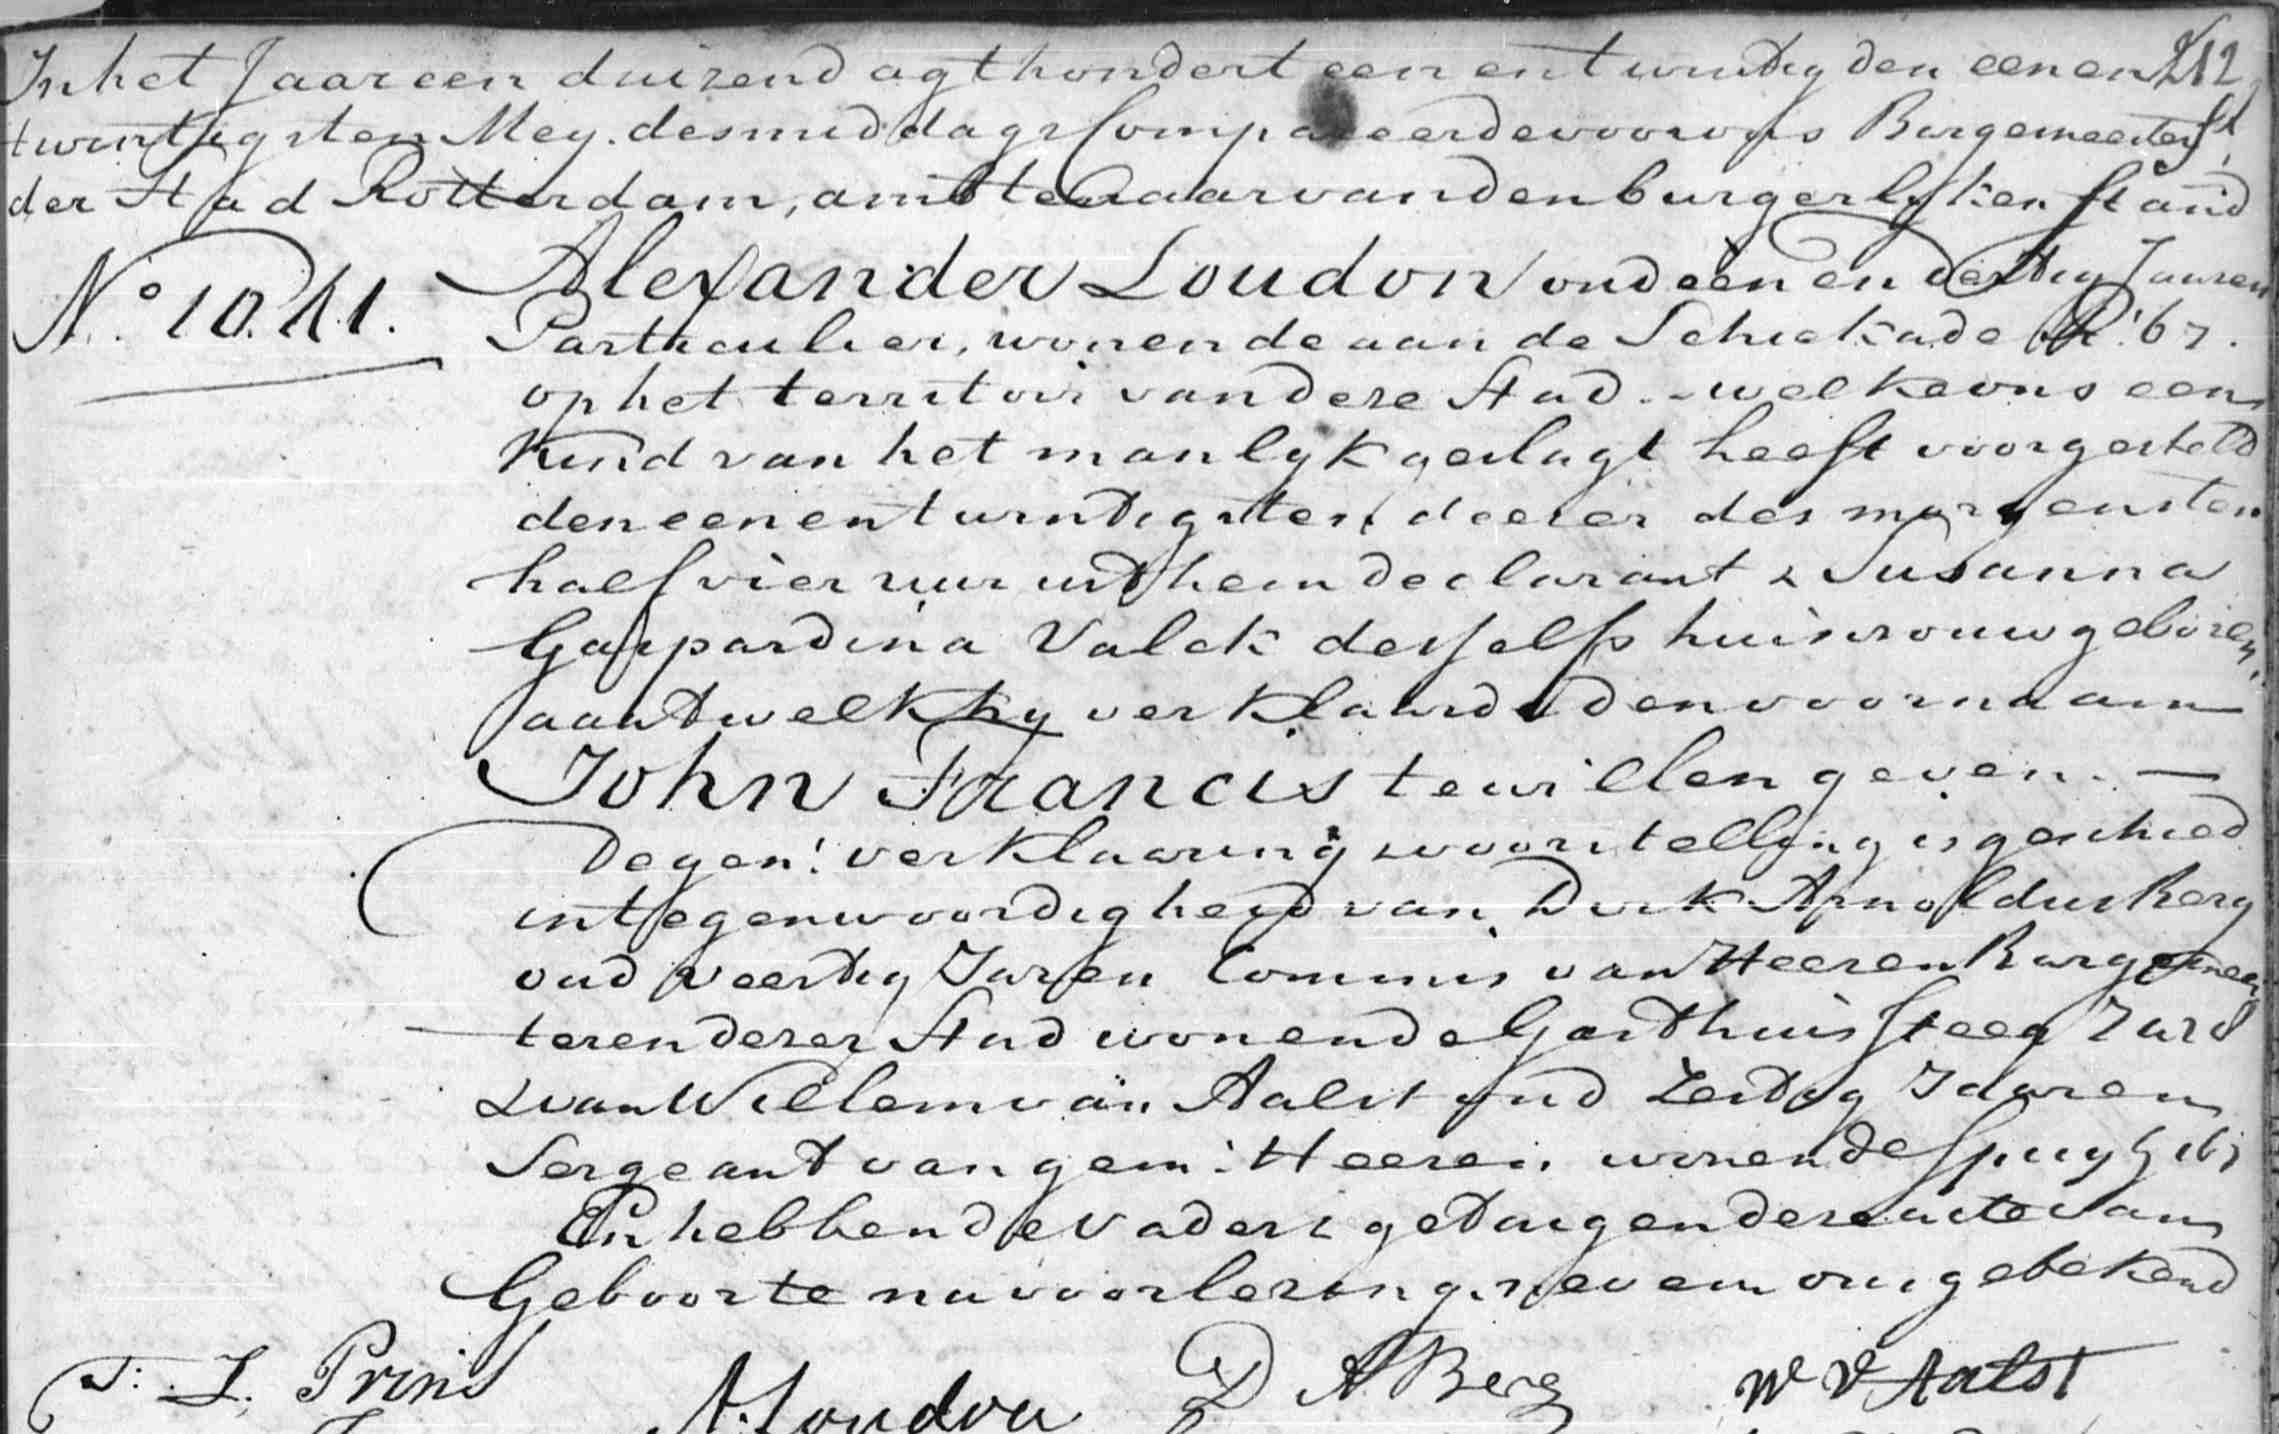 In het Jaar een duizend agthondert een en twintig den een en 212
twintigsten Mey. des middags Compareerde voor ons Burgemeester
der Stad Rotterdam, ambtenaar van den burgerlyken stand
Alexander Loudon oud een en dertig Jaaren
No. 10.11.
Particulier, wonende aan de Schiekade R: 67.
op het territoir van deze Stad. - welke ons een
Kind van het manlyk geslagt heeft voorgesteld
den een en twintigsten deezer des morgens ten
half vier uur uit hem declarant & Susanna
Gaspardina Valck deszelfs huisvrouw geboren,
aan t welk hy verklaarde den voornaam
John Francis te willen geven. —
De gen: verklaaring & voorstelling is geschied
in tegenwoordigheyd van Dirk Arnoldus Berg
oud veertig Jaren Commis van Heeren Burgemees
teren dezer Stad wonende Gasthuis steeg
& van Willem van Aalst oud Zestig Jaaren
Sergeant van gem: Heeren wonende Spuy
En hebben de Vader & getuigen deze acte van
Geboorte na voorlezing nevens ons getekend
J. Prins
A. Loudon
D A Berg
W V Aalst